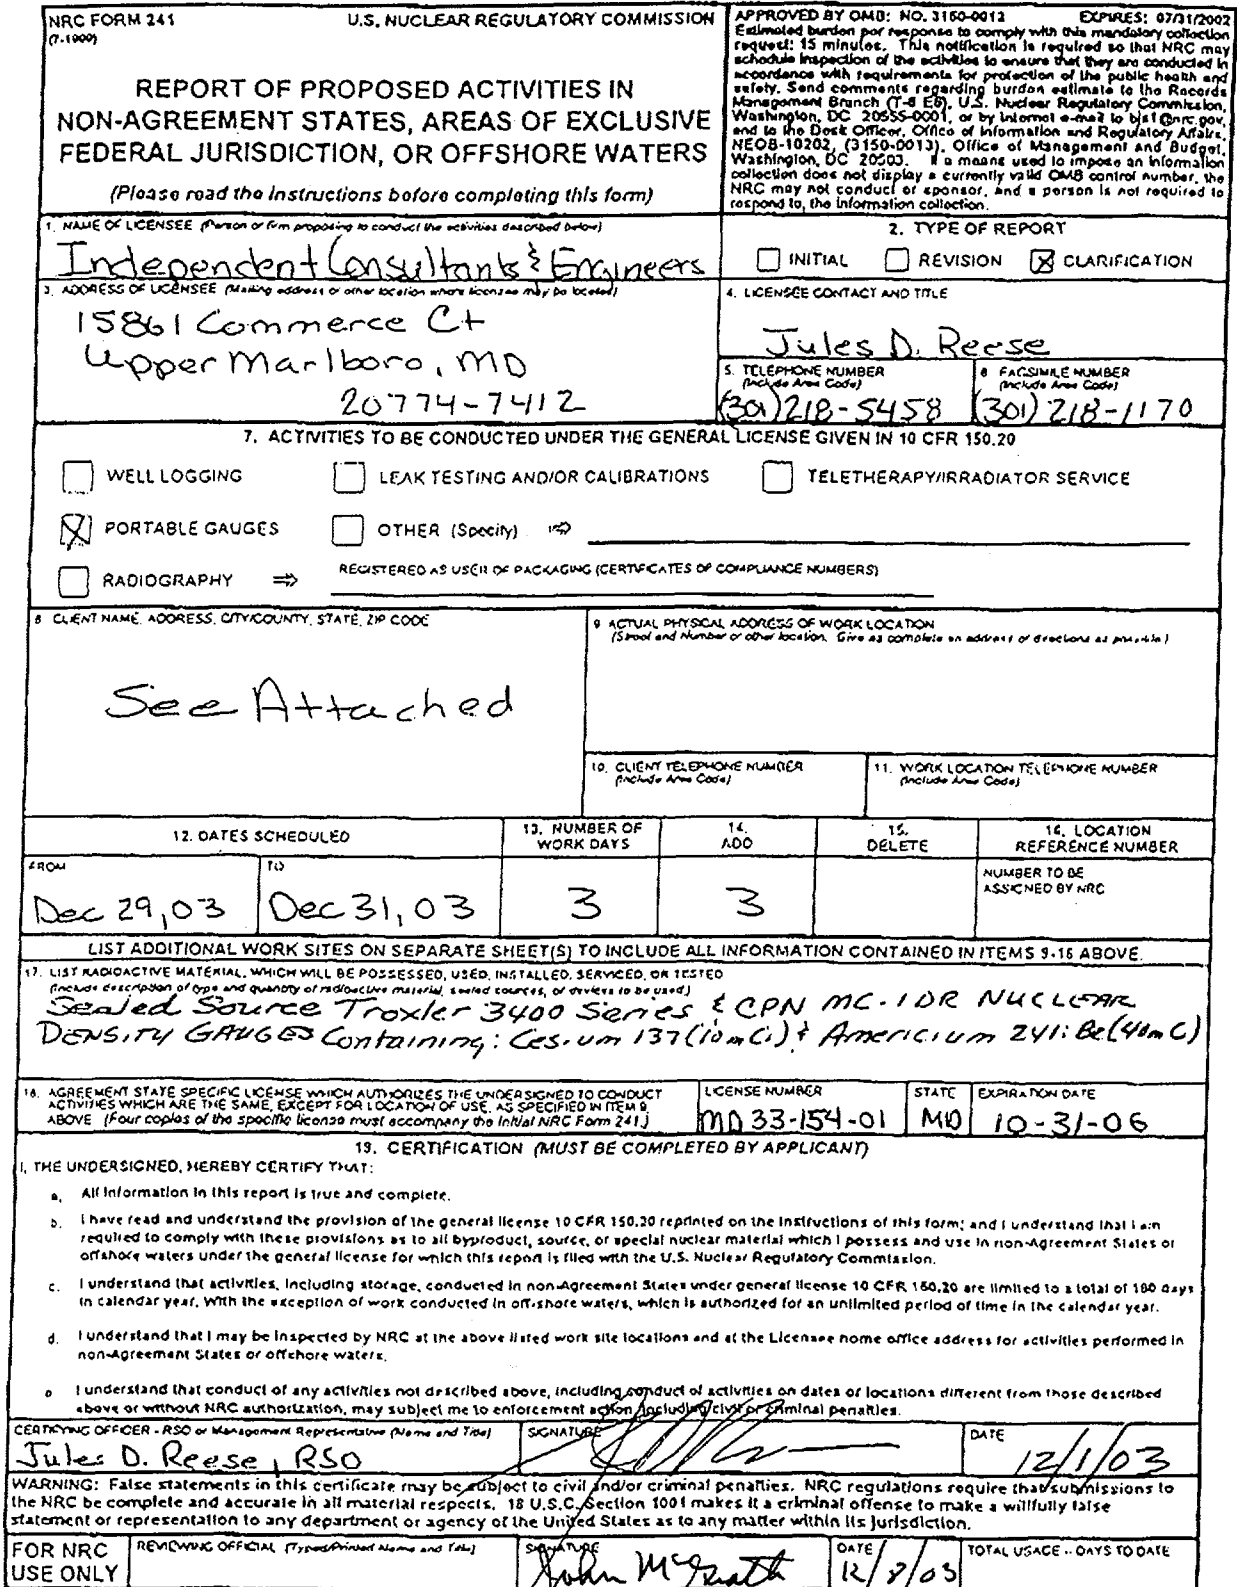 NRC FORM 241
(7-1999)
U.S. NUCLEAR REGULATORY COMMISSION
REPORT OF PROPOSED ACTIVITIES IN
NON-AGREEMENT STATES, AREAS OF EXCLUSIVE
FEDERAL JURISDICTION, OR OFFSHORE WATERS
(Please read the instructions before completing this form)
APPROVED BY OMB: NO. 3150-0013 EXPIRES: 07/31/2002
Estimated burden per response to comply with this mandatory collection
request: 15 minutes. This notification is required so that NRC may
schedule inspection of the activities to ensure that they are conducted in
accordance with requirements for protection of the public health and
safety. Send comments regarding burden estimate to the Records
Management Branch (T-6 E6), U.S. Nuclear Regulatory Commission,
Washington, DC 20555-0001, or by Internet e-mail to bjs1@nrc.gov,
and to the Desk Officer, Office of Information and Regulatory Affairs,
NEOB-10202, (3150-0013), Office of Management and Budget,
Washington, DC 20503. If a means used to impose an information
collection does not display a currently valid OMB control number, the
NRC may not conduct or sponsor, and a person is not required to
respond to, the information collection.
1. NAME OF LICENSEE (Person or firm proposing to conduct the activities described below)
Independent Consultants & Engineers
2. TYPE OF REPORT
INITIAL REVISION CLARIFICATION
3. ADDRESS OF LICENSEE (Mailing address or other location where licensee may be located)
15861 Commerce Ct
Upper Marlboro, MD
20774-7412
4. LICENSEE CONTACT AND TITLE
Jules D. Reese
5. TELEPHONE NUMBER
(Include Area Code)
(301) 218-5458
6 FACSIMILE NUMBER
(Include Area Code)
(301) 218-1170
7. ACTIVITIES TO BE CONDUCTED UNDER THE GENERAL LICENSE GIVEN IN 10 CFR 150.20
WELL LOGGING LEAK TESTING AND/OR CALIBRATIONS TELETHERAPY/IRRADIATOR SERVICE
PORTABLE GAUGES OTHER (Specify) ⇒
RADIOGRAPHY ⇒ REGISTERED AS USER OF PACKAGING (CERTIFICATES OF COMPLIANCE NUMBERS)
8 CLIENT NAME, ADDRESS, CITY/COUNTY, STATE, ZIP CODE
See Attached
9 ACTUAL PHYSICAL ADDRESS OF WORK LOCATION
(Street and Number or other location. Give as complete an address or directions as possible)
10. CLIENT TELEPHONE NUMBER
(Include Area Code)
11. WORK LOCATION TELEPHONE NUMBER
(Include Area Code)
12. DATES SCHEDULED
FROM
Dec 29, 03
TO
Dec 31, 03
13. NUMBER OF
WORK DAYS
3
14.
ADD
3
15.
DELETE
16. LOCATION
REFERENCE NUMBER
NUMBER TO BE
ASSIGNED BY NRC
LIST ADDITIONAL WORK SITES ON SEPARATE SHEET(S) TO INCLUDE ALL INFORMATION CONTAINED IN ITEMS 9-16 ABOVE.
17. LIST RADIOACTIVE MATERIAL, WHICH WILL BE POSSESSED, USED, INSTALLED, SERVICED, OR TESTED
(Include description of type and quantity of radioactive material, sealed sources, or devices to be used)
Sealed Source Troxler 3400 Series & CPN MC-1DR NUCLEAR
DENSITY GAUGES Containing: Cesium 137 (10mCi) & Americium 241:Be (40mC)
18. AGREEMENT STATE SPECIFIC LICENSE WHICH AUTHORIZES THE UNDERSIGNED TO CONDUCT
ACTIVITIES WHICH ARE THE SAME, EXCEPT FOR LOCATION OF USE, AS SPECIFIED IN ITEM 9
ABOVE (Four copies of the specific license must accompany the initial NRC Form 241.)
LICENSE NUMBER
MD 33-154-01
STATE
MD
EXPIRATION DATE
10-31-06
19. CERTIFICATION (MUST BE COMPLETED BY APPLICANT)
I, THE UNDERSIGNED, HEREBY CERTIFY THAT:
a. All information in this report is true and complete.
b. I have read and understand the provision of the general license 10 CFR 150.20 reprinted on the instructions of this form; and I understand that I am
required to comply with these provisions as to all byproduct, source, or special nuclear material which I possess and use in non-Agreement States or
offshore waters under the general license for which this report is filed with the U.S. Nuclear Regulatory Commission.
c. I understand that activities, including storage, conducted in non-Agreement States under general license 10 CFR 150.20 are limited to a total of 180 days
in calendar year. With the exception of work conducted in off-shore waters, which is authorized for an unlimited period of time in the calendar year.
d. I understand that I may be inspected by NRC at the above listed work site locations and at the Licensee home office address for activities performed in
non-Agreement States or offshore waters.
e I understand that conduct of any activities not described above, including conduct of activities on dates or locations different from those described
above or without NRC authorization, may subject me to enforcement action, including civil or criminal penalties.
CERTIFYING OFFICER - RSO or Management Representative (Name and Title)
Jules D. Reese, RSO
SIGNATURE
DATE
12/1/03
WARNING: False statements in this certificate may be subject to civil and/or criminal penalties. NRC regulations require that submissions to
the NRC be complete and accurate in all material respects. 18 U.S.C. Section 1001 makes it a criminal offense to make a willfully false
statement or representation to any department or agency of the United States as to any matter within its jurisdiction.
FOR NRC
USE ONLY
REVIEWING OFFICIAL (Typed/Printed Name and Title)
SIGNATURE
John McGrath
DATE
12/8/03
TOTAL USAGE -- DAYS TO DATE